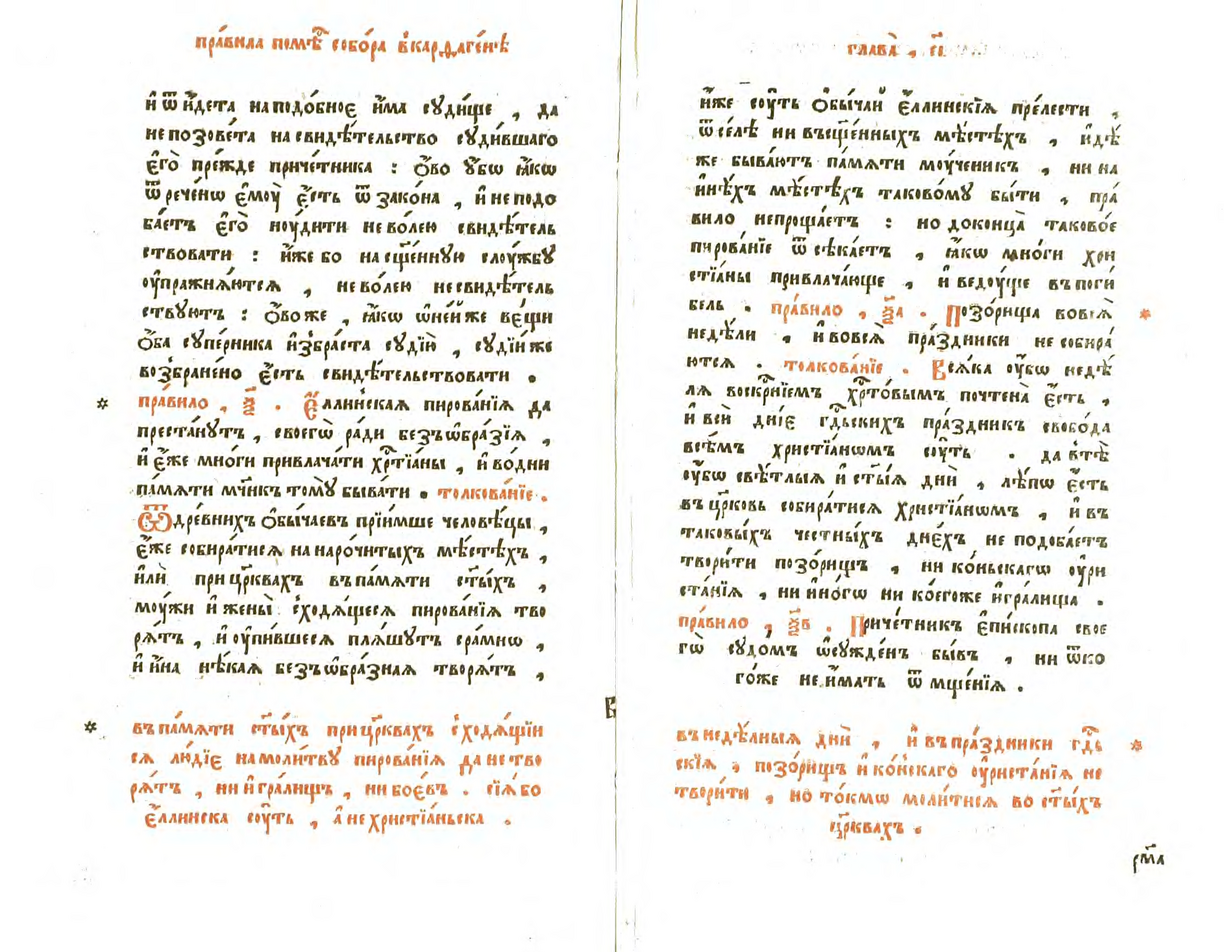 пра́вила помѣ́ст собо́ра в̾карѳаге́нѣ
и҆ ѿи҆́дета наподо́бное и҆́ма суди́ще , да
непозове́та насвидѣ́тельство суди́вшаго
є҆го̀ пре́жде приче́тника : ѻ҆́во у҆́бѡ ꙗ҆́кѡ
ѿрече́нѡ є҆моу̀ є҆́сть ѿзако́на , и҆неподо
ба́етъ є҆го̀ ноу́дити нево́лею свидѣ́тель
ствовати : и҆́же бо насщ҃е́нную слоу́жбу
оу҆пражнѧ́ютсѧ , нево́лею несвидѣ́тель
ствуютъ : ѻ҆́воже , ꙗ҆́кѡ ѡ҆не́йже ве́щи
ѻ҆́ба супе́рника и҆збра́ста судїю̀ , судїи́же
возбране́но є҆́сть свидѣ́тельствовати .
* пра́вило , ѯ҃ . Є҆́ллинскаѧ пирова́нїѧ да
преста́нутъ , своегѡ̀ ра́ди безъѡбра́зїѧ ,
и҆ є҆́же мно́ги привлача́ти хрⷭ҇тїа́ны , и҆ во́дни
па́мѧти мч҃нкъ то́му быва́ти . толкова́нїе .
Ѿдре́внихъ ѻ҆бы́чаевъ прїи́мше человѣ́цы ,
є҆́же собира́тисѧ нанаро́читыхъ мѣ́стѣхъ ,
и҆лѝ прицр҃квахъ въпа́мѧти ст҃ы́хъ ,
моу́жи и҆ жены̀ сходѧ́щесѧ пирова́нїѧ тво
рѧ́тъ , и҆ оу҆пи́вшесѧ плѧ́шутъ сра́мнѡ ,
и҆ и҆́на нѣ́каѧ безъѡбра́знаѧ творѧ́тъ ,
* въпа́мѧти ст҃ы́хъ прицр҃квахъ сходѧ́щїи
сѧ лю́дїе намоли́тву пирова́нїѧ да нетво
рѧ́тъ , ни и҆гра́лищъ , ни бое́въ . сїѧ́ бо
є҆́ллинска соу́ть , а҆ не христїа́ньска .
глава̀ , є҃і .
и҆́же соу́ть ѻ҆бы́чаи є҆́ллинскїѧ пре́лести ,
ѿсе́лѣ ни въсщ҃е́нныхъ мѣ́стѣхъ , и҆дѣ́
же быва́ютъ па́мѧти моу́ченикъ , ни на
и҆нѣ́хъ мѣ́стѣхъ таково́му бы́ти , пра́
вило непроща́етъ : но доконца̀ таково́е
пирова́нїе ѿсѣка́етъ , ꙗ҆́кѡ мно́ги хри
стїа́ны привлача́юще , и҆ веду́ще въпоги́
бель . пра́вило , ѯ҃а . Позо́рища вовсѧ̀ *
недѣ́ли , и҆ вовсѧ̀ пра́здники не собира́
ютсѧ . толкова́нїе . Всѧ́ка оу҆́бѡ недѣ́
лѧ воскрⷭ҇нїемъ хрⷭ҇то́вымъ почте́на є҆́сть ,
и҆ всѝ дні́е гдⷭ҇ьскихъ пра́здникъ свобо́да
всѣ́мъ христїа́нѡмъ соу́ть . да втѣ̀
оу҆́бѡ свѣ́тлыѧ и҆ ст҃ы́ѧ днѝ , лѣ́пѡ є҆́сть
въцр҃ковь собира́тисѧ христїа́нѡмъ , и҆ въ
таковы́хъ че́стныхъ дне́хъ не подоба́етъ
твори́ти позо́рищъ , ни ко́ньскагѡ оу҆ри
ста́нїѧ , ни и҆но́гѡ ни кое́гоже и҆гра́лища .
пра́вило , ѯ҃в . Приче́тникъ є҆пи́скопа свое
гѡ̀ судо́мъ ѡ҆сужде́нъ бы́въ , ни ѿко
го́же не и҆́мать ѿмще́нїѧ .
въ недѣ́лныѧ днѝ , и҆ въпра́здники гдⷭ҇ь *
скїѧ , позо́рищъ и҆ ко́нскаго оу҆риста́нїѧ не
твори́ти , но то́кмѡ моли́тисѧ во ст҃ы́хъ
цр҃квахъ .
рм҃а